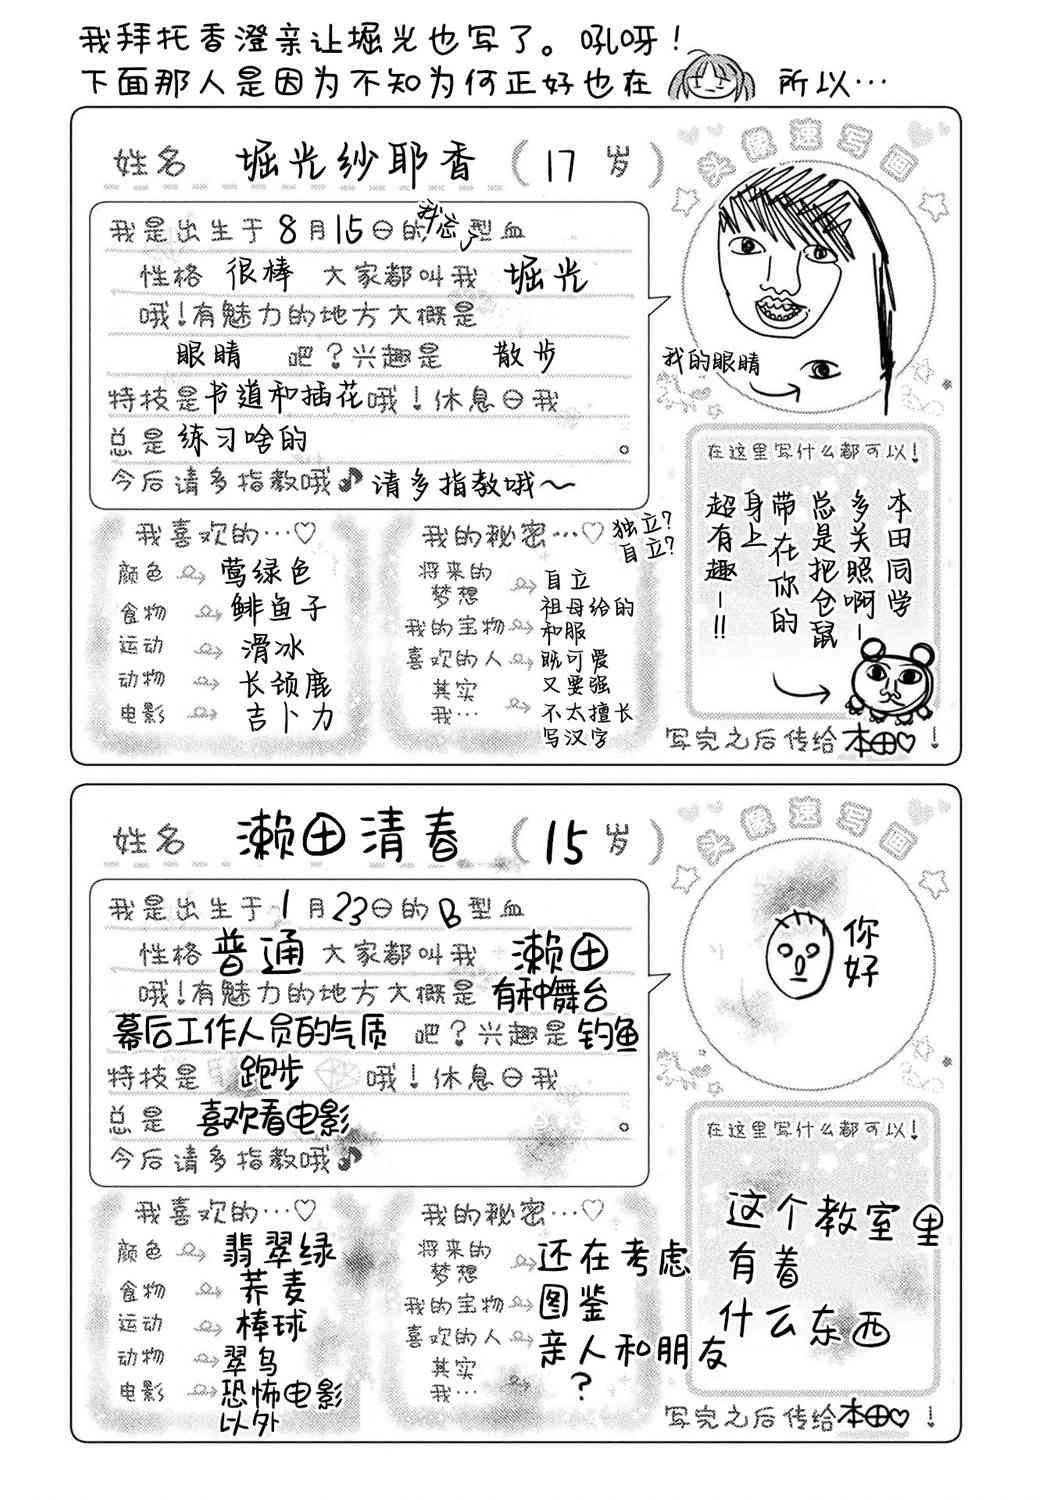 我拜托香澄亲让堀光也写了。吼呀！
下面那人是因为不知为何正好也在 所以…
姓名 堀光纱耶香（17岁）
头像速写画
我是出生于8月15日的我忘了型血
性格 很棒 大家都叫我 堀光
哦！有魅力的地方大概是
眼睛 吧？兴趣是 散步
特技是书道和插花哦！休息日我
总是练习啥的。
今后请多指教哦♪请多指教哦～
我的眼睛
在这里写什么都可以！
本田同学
多关照啊—
总是把仓鼠
带在你的
身上
超有趣—!!
我喜欢的…♡
颜色 莺绿色
食物 鲱鱼子
运动 滑冰
动物 长颈鹿
电影 吉卜力
我的秘密…♡
独立？
自立？
将来的梦想 自立
我的宝物 祖母给的和服
喜欢的人 既可爱又要强
其实我… 不太擅长写汉字
写完之后传给本田♡！
姓名 濑田清春（15岁）
头像速写画
我是出生于1月23日的B型血
性格 普通 大家都叫我 濑田
哦！有魅力的地方大概是 有种舞台
幕后工作人员的气质 吧？兴趣是 钓鱼
特技是 跑步 哦！休息日我
总是 喜欢看电影。
今后请多指教哦♪
你好
在这里写什么都可以！
这个教室里
有着
什么东西
我喜欢的…♡
颜色 翡翠绿
食物 荞麦
运动 棒球
动物 翠鸟
电影 恐怖电影以外
我的秘密…♡
将来的梦想 还在考虑
我的宝物 图鉴
喜欢的人 亲人和朋友
其实我… ？
写完之后传给本田♡！